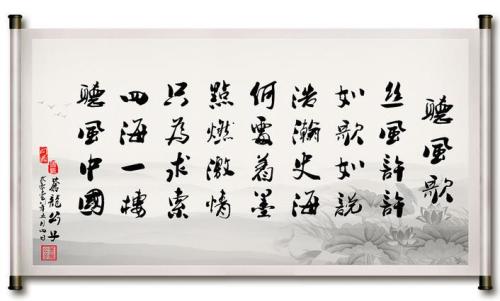 聽風歌
丝風許許
如歌如説
浩瀚史海
何需着墨
點燃激情
只為求索
四海一樓
聽風中國
龍
五月四日